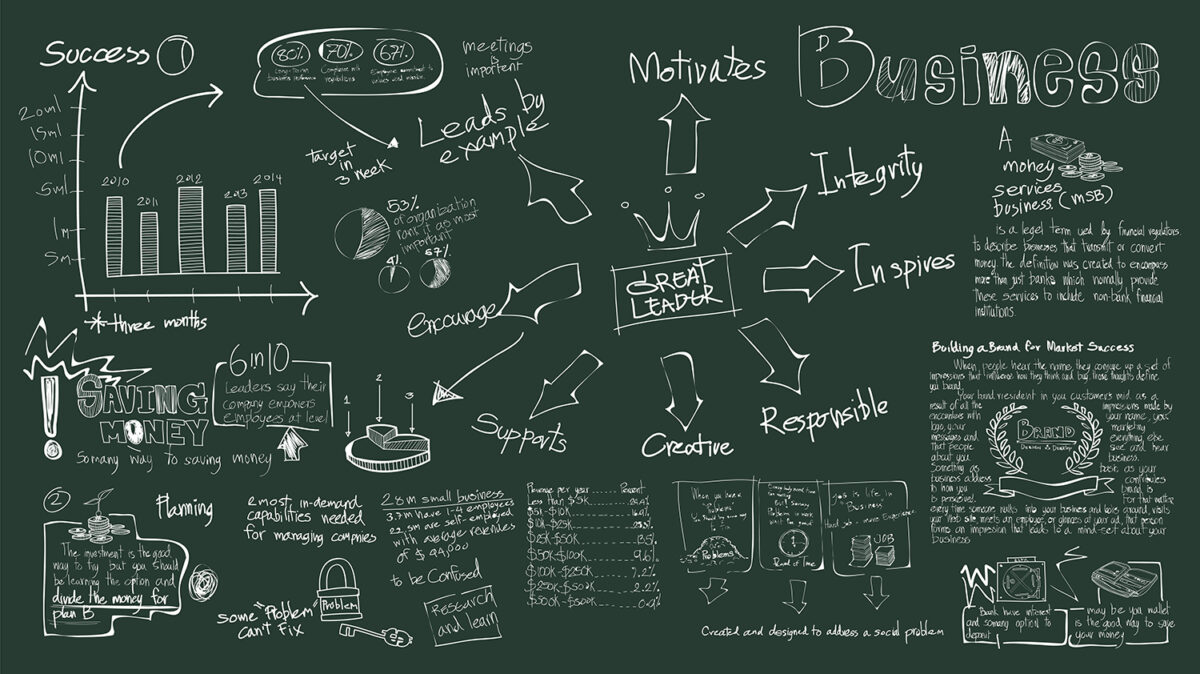 Success 1
20ml
15ml
10ml
5ml
1m
5m
2010
2011
2012
2013
2014
three months
80%
70%
67%
meetings
is
important
Leads by
example
target
in
3 week
53%
of organization
rank it as most
important
4%
67%
Motivates
Integrity
Inspires
Responsible
Creative
Supports
encourage
GREAT
LEADER
Business
A
money
services
business (MSB)
is a legel term used by financial regulators
to describe businesses that transmit or convert
money. the definition was created to encompass
more than just banks which normally provide
these services to include non-bank financial
institutions.
!
SAVING
MONEY
Somany way to saving money
6 in 10
Leaders say their
company empowers
employees at level
1
2
3
2
Planning
The investment is the good
way to try but you should
be learning the option and
divide the money for
plan B
2 most in-demand
capabilities needed
for managing companies
some "Problem"
can't Fix
Problem
2.8 m small business
3.7m have 1-4 employees
22.5m are self-employed
with average revenues
of $ 44,000
to be Confused
Research
and learn
Revenue per year Percent
Less than $5k
$5k-$10k
$10k-$25k
$25k-$50k
$50k-$100k 9.6%
$100k-$250k 7.2%
$250k-$500k 2.2%
$500k-$500k 0.9%
When you have a
Problems
Road of Time
Job is life in
Business
Hard job = more Experience
JOB
Created and designed to address a social problem
Building a Brand for Market Success
When people hear the name, they conjure up a set of
impressions that influence how they think and buy. those thoughts define
your brand.
BRAND
result of all the
encounters with
logo, your
messages and
that people
about you
Something as
business address
is how you
is perceived.
impressions made by
your name, your
marketing
everything else
see and hear
business.
basic as your
contributes
brand is
for that matter
every time someone walks into your business and looks around, visits
your Web site, meets an employee, or glances at your ad, that person
forms an impression that leads to a mind-set about your
business
Bank have interest
and somany option to
deposit
may be you wallet
is the good way to save
your money